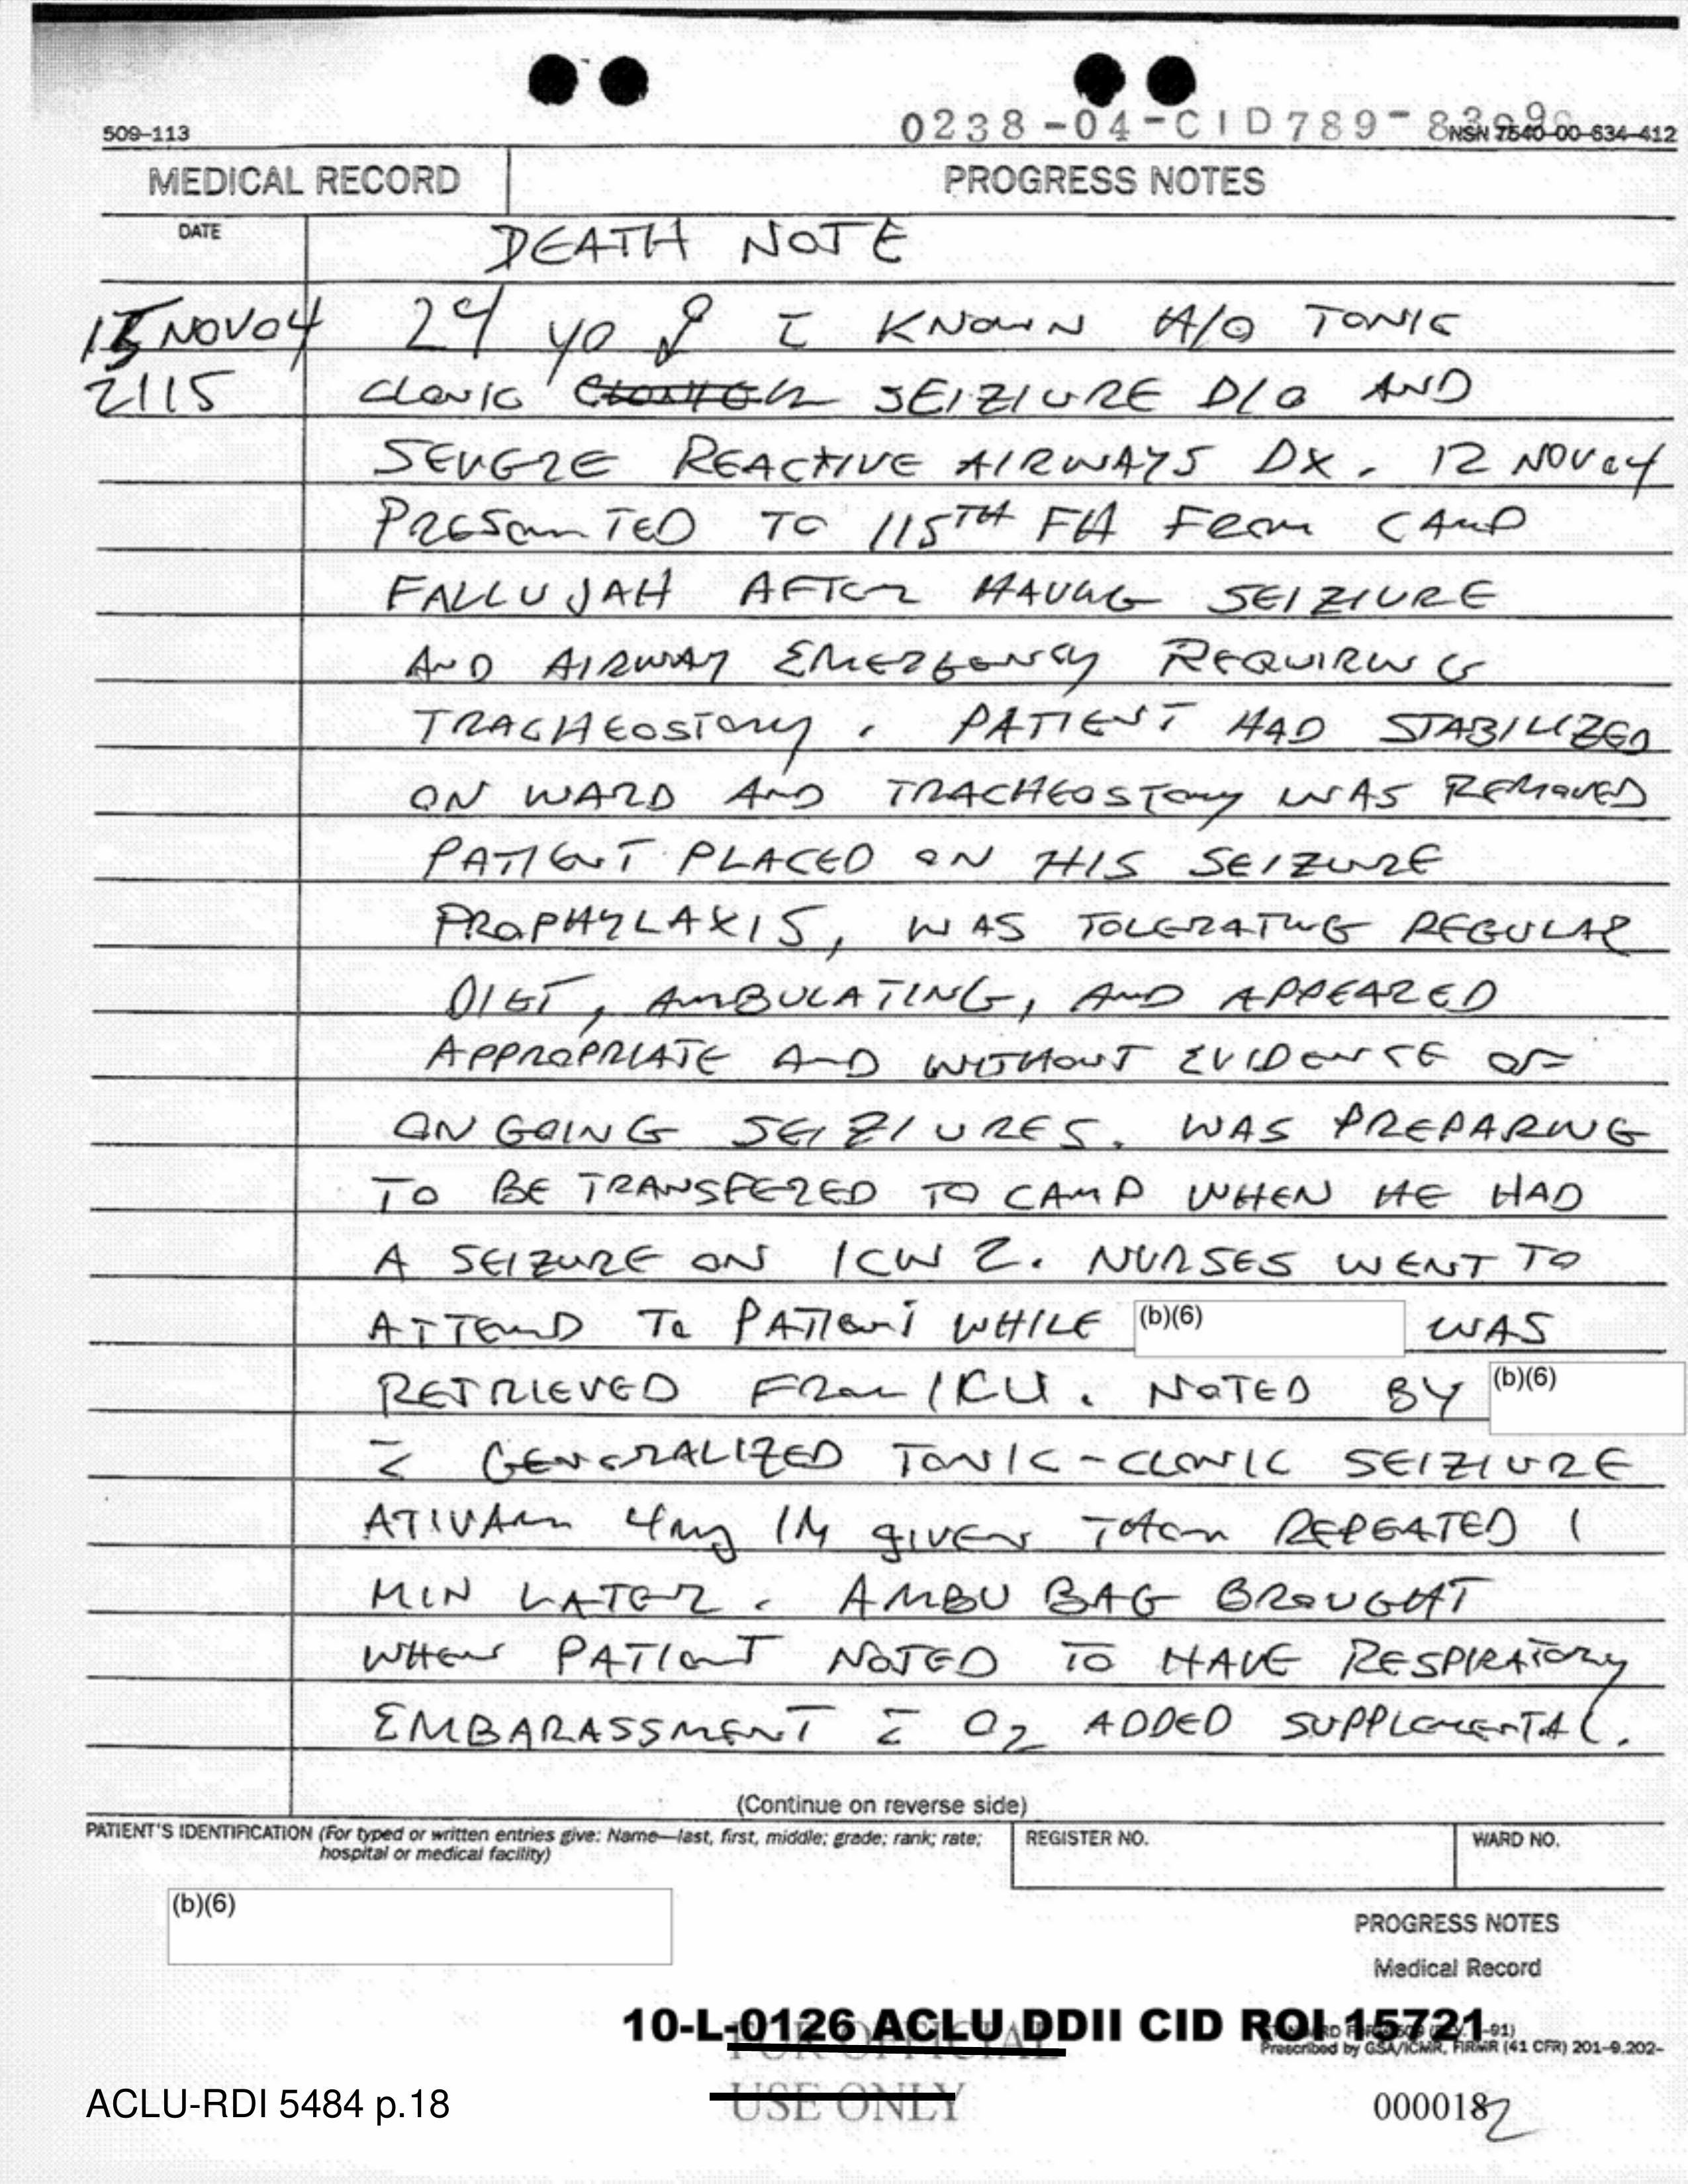 0238-04-CID789-
509-113
NSN 7540-00-634-412
MEDICAL RECORD
PROGRESS NOTES
DATE
DEATH NOTE
NOV04 yo ♂ c̄ KNOWN H/O TONIC
2115 clonic SEIZIURE D/O AND
SEVERE REACTIVE AIRWAYS DX. 12 NOV04
PRESENTED TO 115TH FH FROM CAMP
FALLUJAH AFTER HAVING SEIZIURE
AND AIRWAY EMERGENCY REQUIRING
TRACHEOSTOMY. PATIENT HAD STABILIZED
ON WARD AND TRACHEOSTOMY WAS REMOVED
PATIENT PLACED ON HIS SEIZURE
PROPHYLAXIS, WAS TOLERATING REGULAR
DIET, AMBULATING, AND APPEARED
APPROPRIATE AND WITHOUT EVIDENCE OF
ONGOING SEIZIURES. WAS PREPARING
TO BE TRANSFERED TO CAMP WHEN HE HAD
A SEIZURE ON ICW 2. NURSES WENT TO
ATTEND TO PATIENT WHILE (b)(6) WAS
RETRIEVED FROM ICU. NOTED BY (b)(6)
c̄ GENERALIZED TONIC-CLONIC SEIZIURE
ATIVAN 4mg IM given THEN REPEATED 1
MIN LATER. AMBU BAG BROUGHT
WHEN PATIENT NOTED TO HAVE RESPIRATORY
EMBARASSMENT c̄ O2 ADDED SUPPLEMENTAL.
(Continue on reverse side)
PATIENT'S IDENTIFICATION (For typed or written entries give: Name—last, first, middle; grade; rank; rate;
hospital or medical facility)
REGISTER NO.
WARD NO.
(b)(6)
PROGRESS NOTES
Medical Record
10-L-0126 ACLU DDII CID ROI 15721
-91)
Prescribed by GSA/ICMR, FIRMR (41 CFR) 201-9.202-
FOR OFFICIAL
USE ONLY
ACLU-RDI 5484 p.18
000018